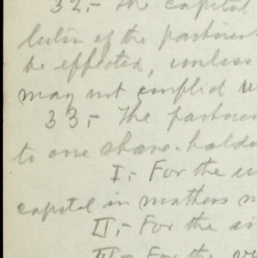 32,- The capital
of the partners
be effected, unless
may not conflict
33,- The partner
to one share-holde
I,- For the
capital in matters
II,- For the
III- For the